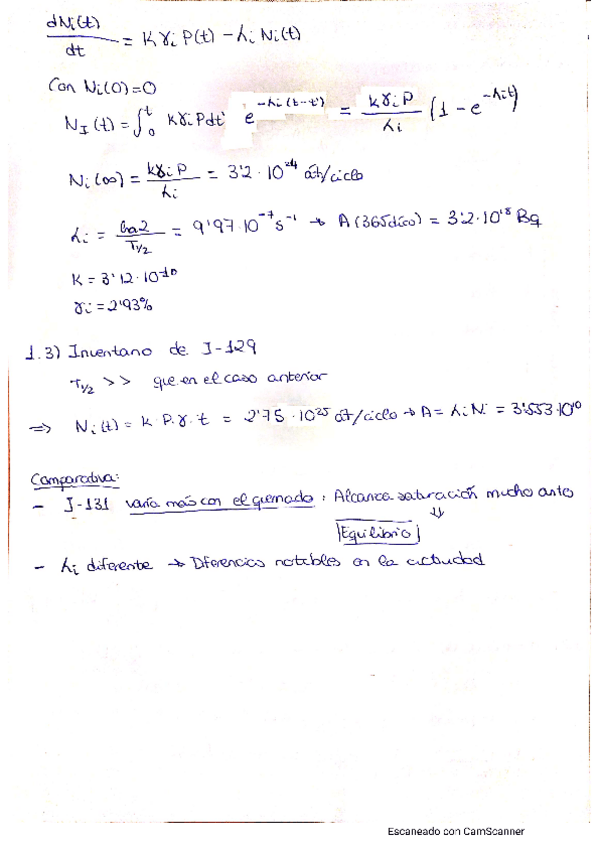 dNi(t)/dt = K γi P(t) - λi Ni(t)
Con Ni(0)=0
NI(t) = ∫₀ᵗ kγi P dt' e^(-λi(t-t')) = kγiP/λi (1 - e^(-λit))
Ni(∞) = kγiP/λi = 3'2 · 10²⁴ át/ciclo
λi = ln2/T1/2 = 9'97·10⁻⁷ s⁻¹ → A(365días) = 3'2·10¹⁸ Bq
K = 3'12·10⁻¹⁰
γi = 2'93%
1.3) Inventario de I-129
T1/2 >> que en el caso anterior
⇒ Ni(t) = K·P·γ·t = 2'75·10²⁵ át/ciclo → A = λiNi = 3'553·10¹⁰
Comparativa:
- I-131 varía más con el quemado: Alcanza saturación mucho antes
⇓
|Equilibrio|
- λi diferente → Diferencias notables en la actividad
Escaneado con CamScanner